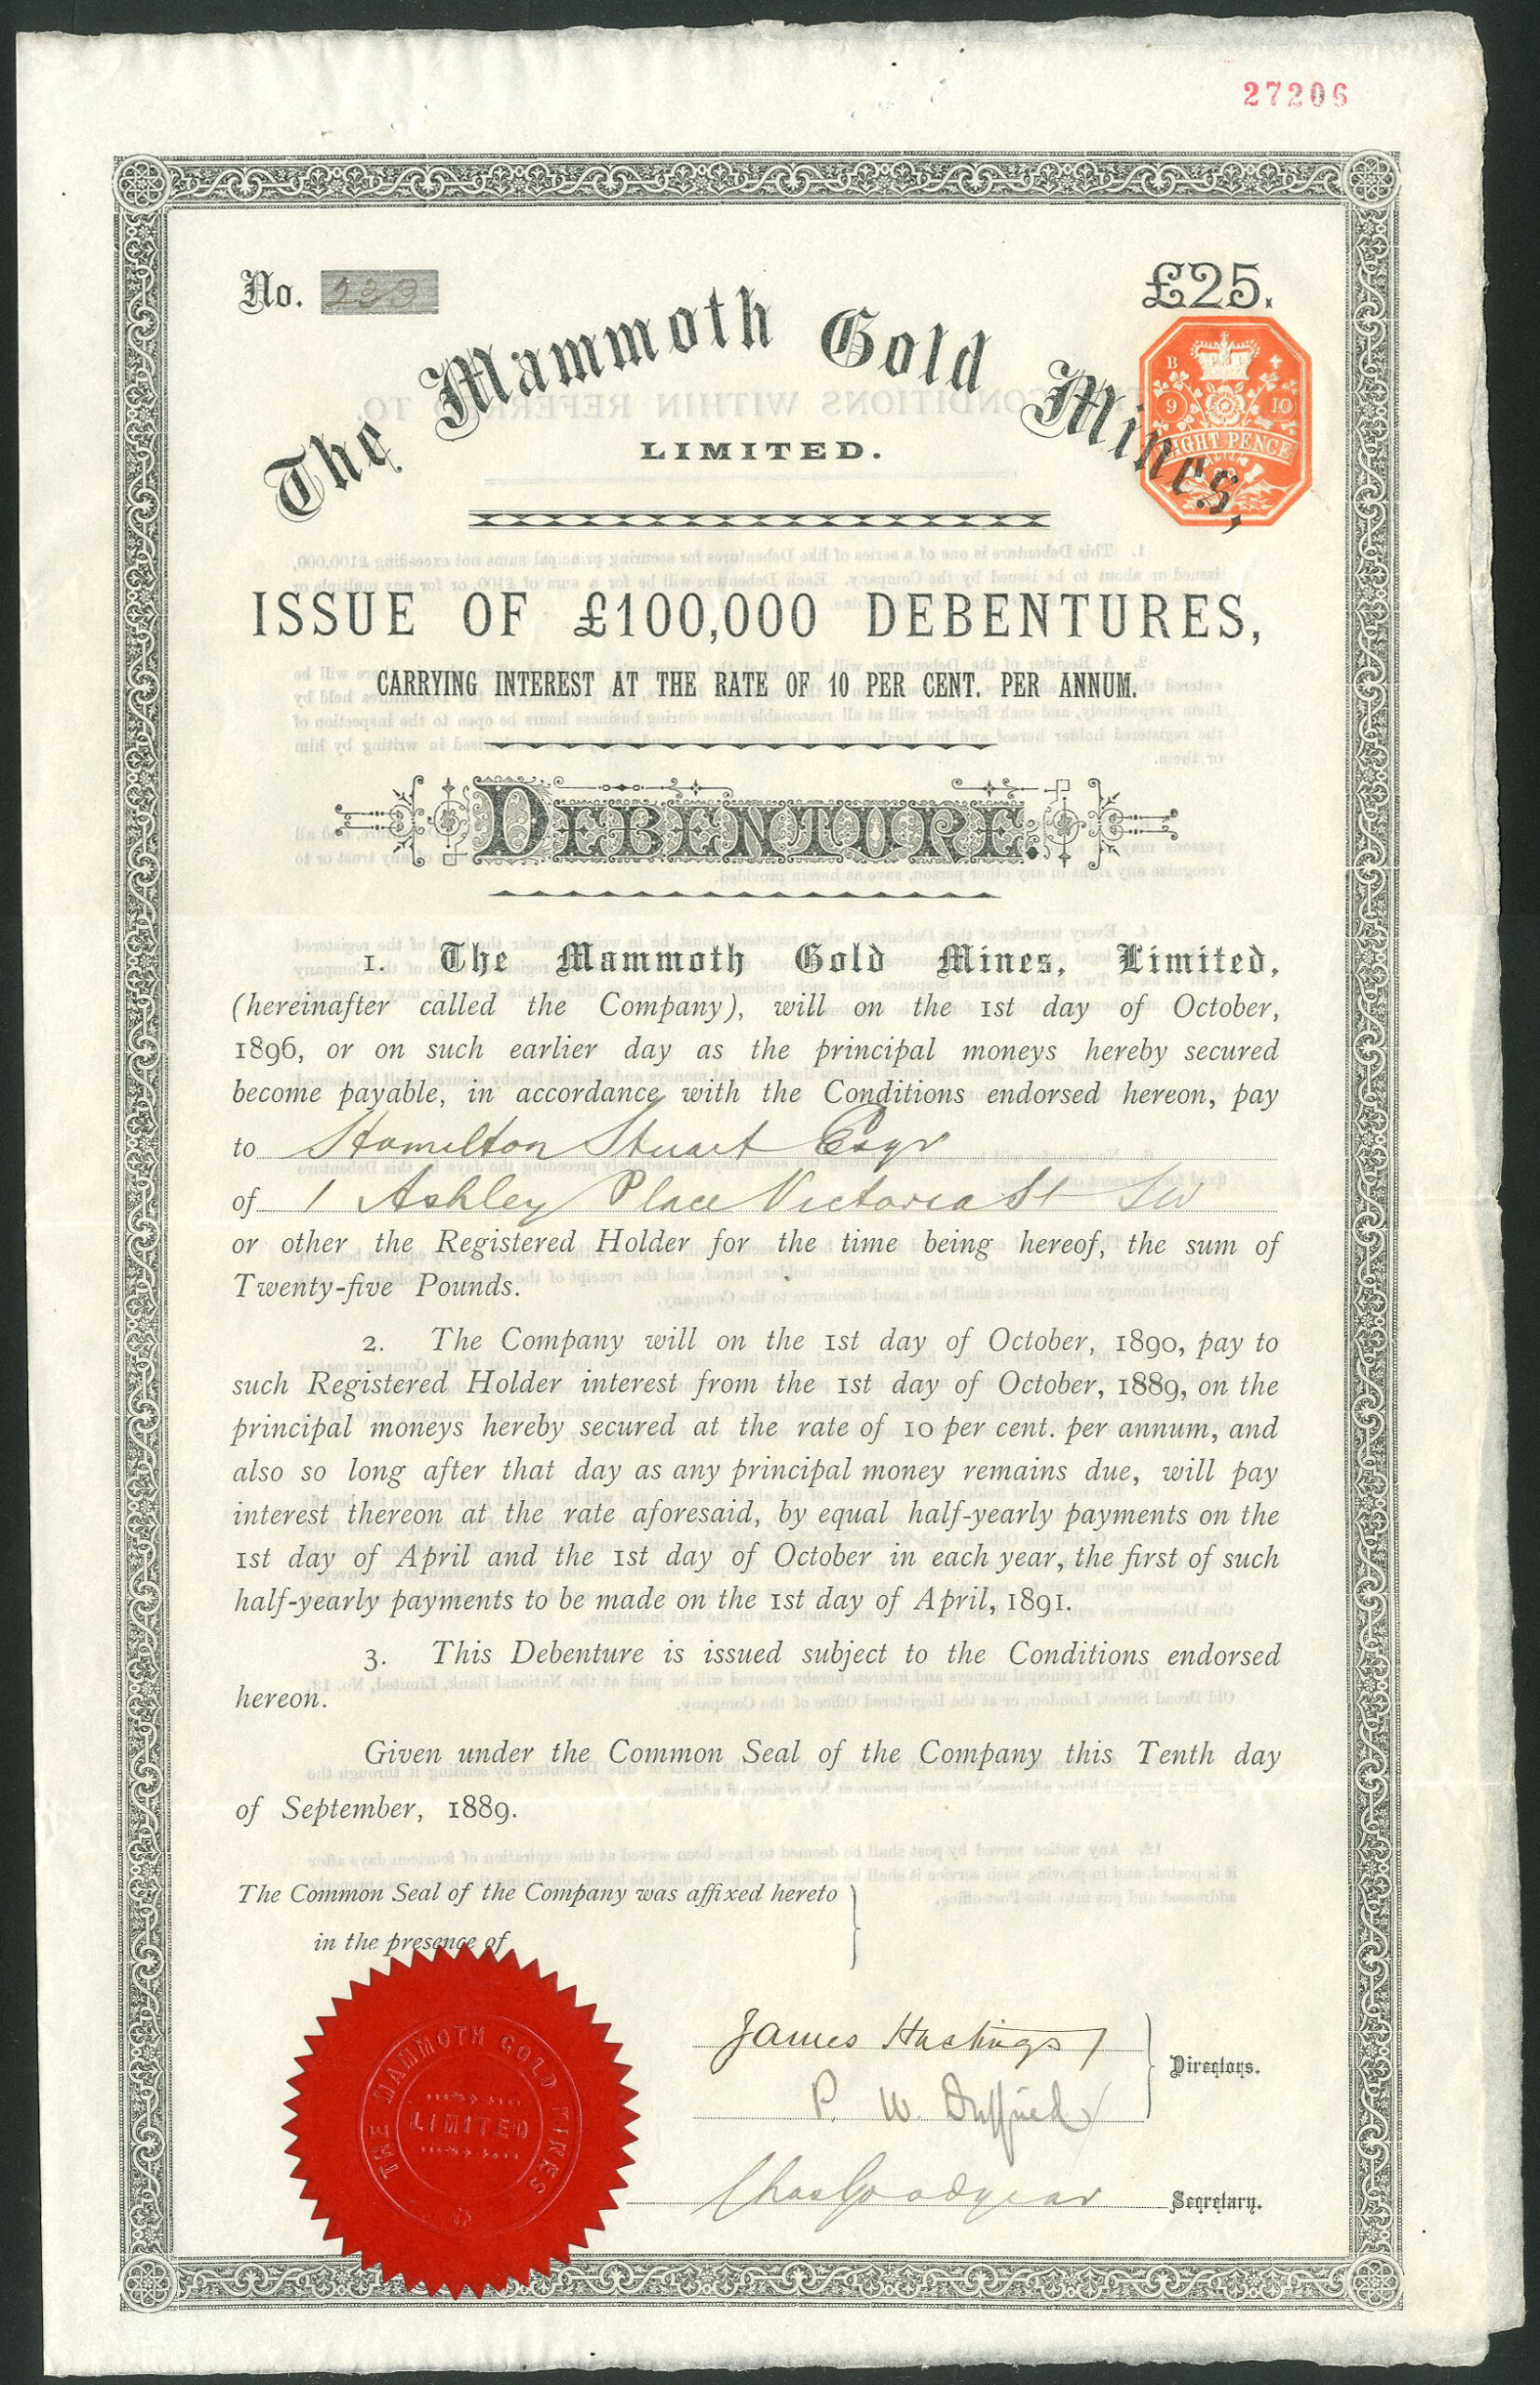 27206
No. 233
£25.
The Mammoth Gold Mines,
LIMITED.
B
9 10
EIGHT PENCE
ISSUE OF £100,000 DEBENTURES,
CARRYING INTEREST AT THE RATE OF 10 PER CENT. PER ANNUM.
DEBENTURE.
1. The Mammoth Gold Mines, Limited,
(hereinafter called the Company), will on the 1st day of October,
1896, or on such earlier day as the principal moneys hereby secured
become payable, in accordance with the Conditions endorsed hereon, pay
to Hamilton Stuart Esqr
of 1 Ashley Place Victoria St SW
or other the Registered Holder for the time being hereof, the sum of
Twenty-five Pounds.
2. The Company will on the 1st day of October, 1890, pay to
such Registered Holder interest from the 1st day of October, 1889, on the
principal moneys hereby secured at the rate of 10 per cent. per annum, and
also so long after that day as any principal money remains due, will pay
interest thereon at the rate aforesaid, by equal half-yearly payments on the
1st day of April and the 1st day of October in each year, the first of such
half-yearly payments to be made on the 1st day of April, 1891.
3. This Debenture is issued subject to the Conditions endorsed
hereon.
Given under the Common Seal of the Company this Tenth day
of September, 1889.
The Common Seal of the Company was affixed hereto
in the presence of
THE MAMMOTH GOLD MINES
LIMITED
James Hastings
Directors.
P. W. Duffield
Chas Goodyear Secretary.